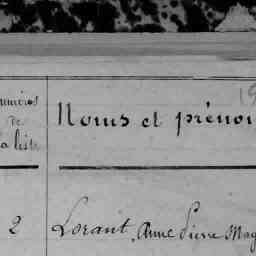 numéros
de
la liste
Noms et prénoms
19
2
Lorant, Anne Pierre Mag